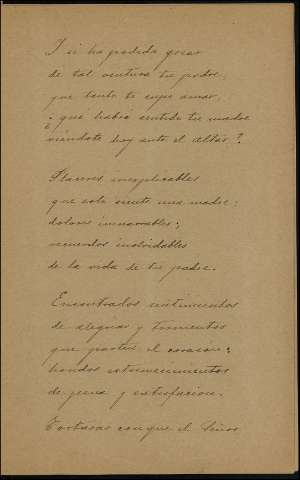 I si ha podido gozar
de tal ventura tu padre,
que tanto te supo amar,
¿qué habrá sentido tu madre
viéndote hoy ante el altar?
Placeres inexplicables
que solo siente una madre;
dolores inenarrables;
recuerdos inolvidables
de la vida de tu padre.
Encontrados sentimientos
de alegrias y tormentos
que parten el corazón;
hondos estremecimientos
de pena y satisfacion.
Torturas con que el Señor